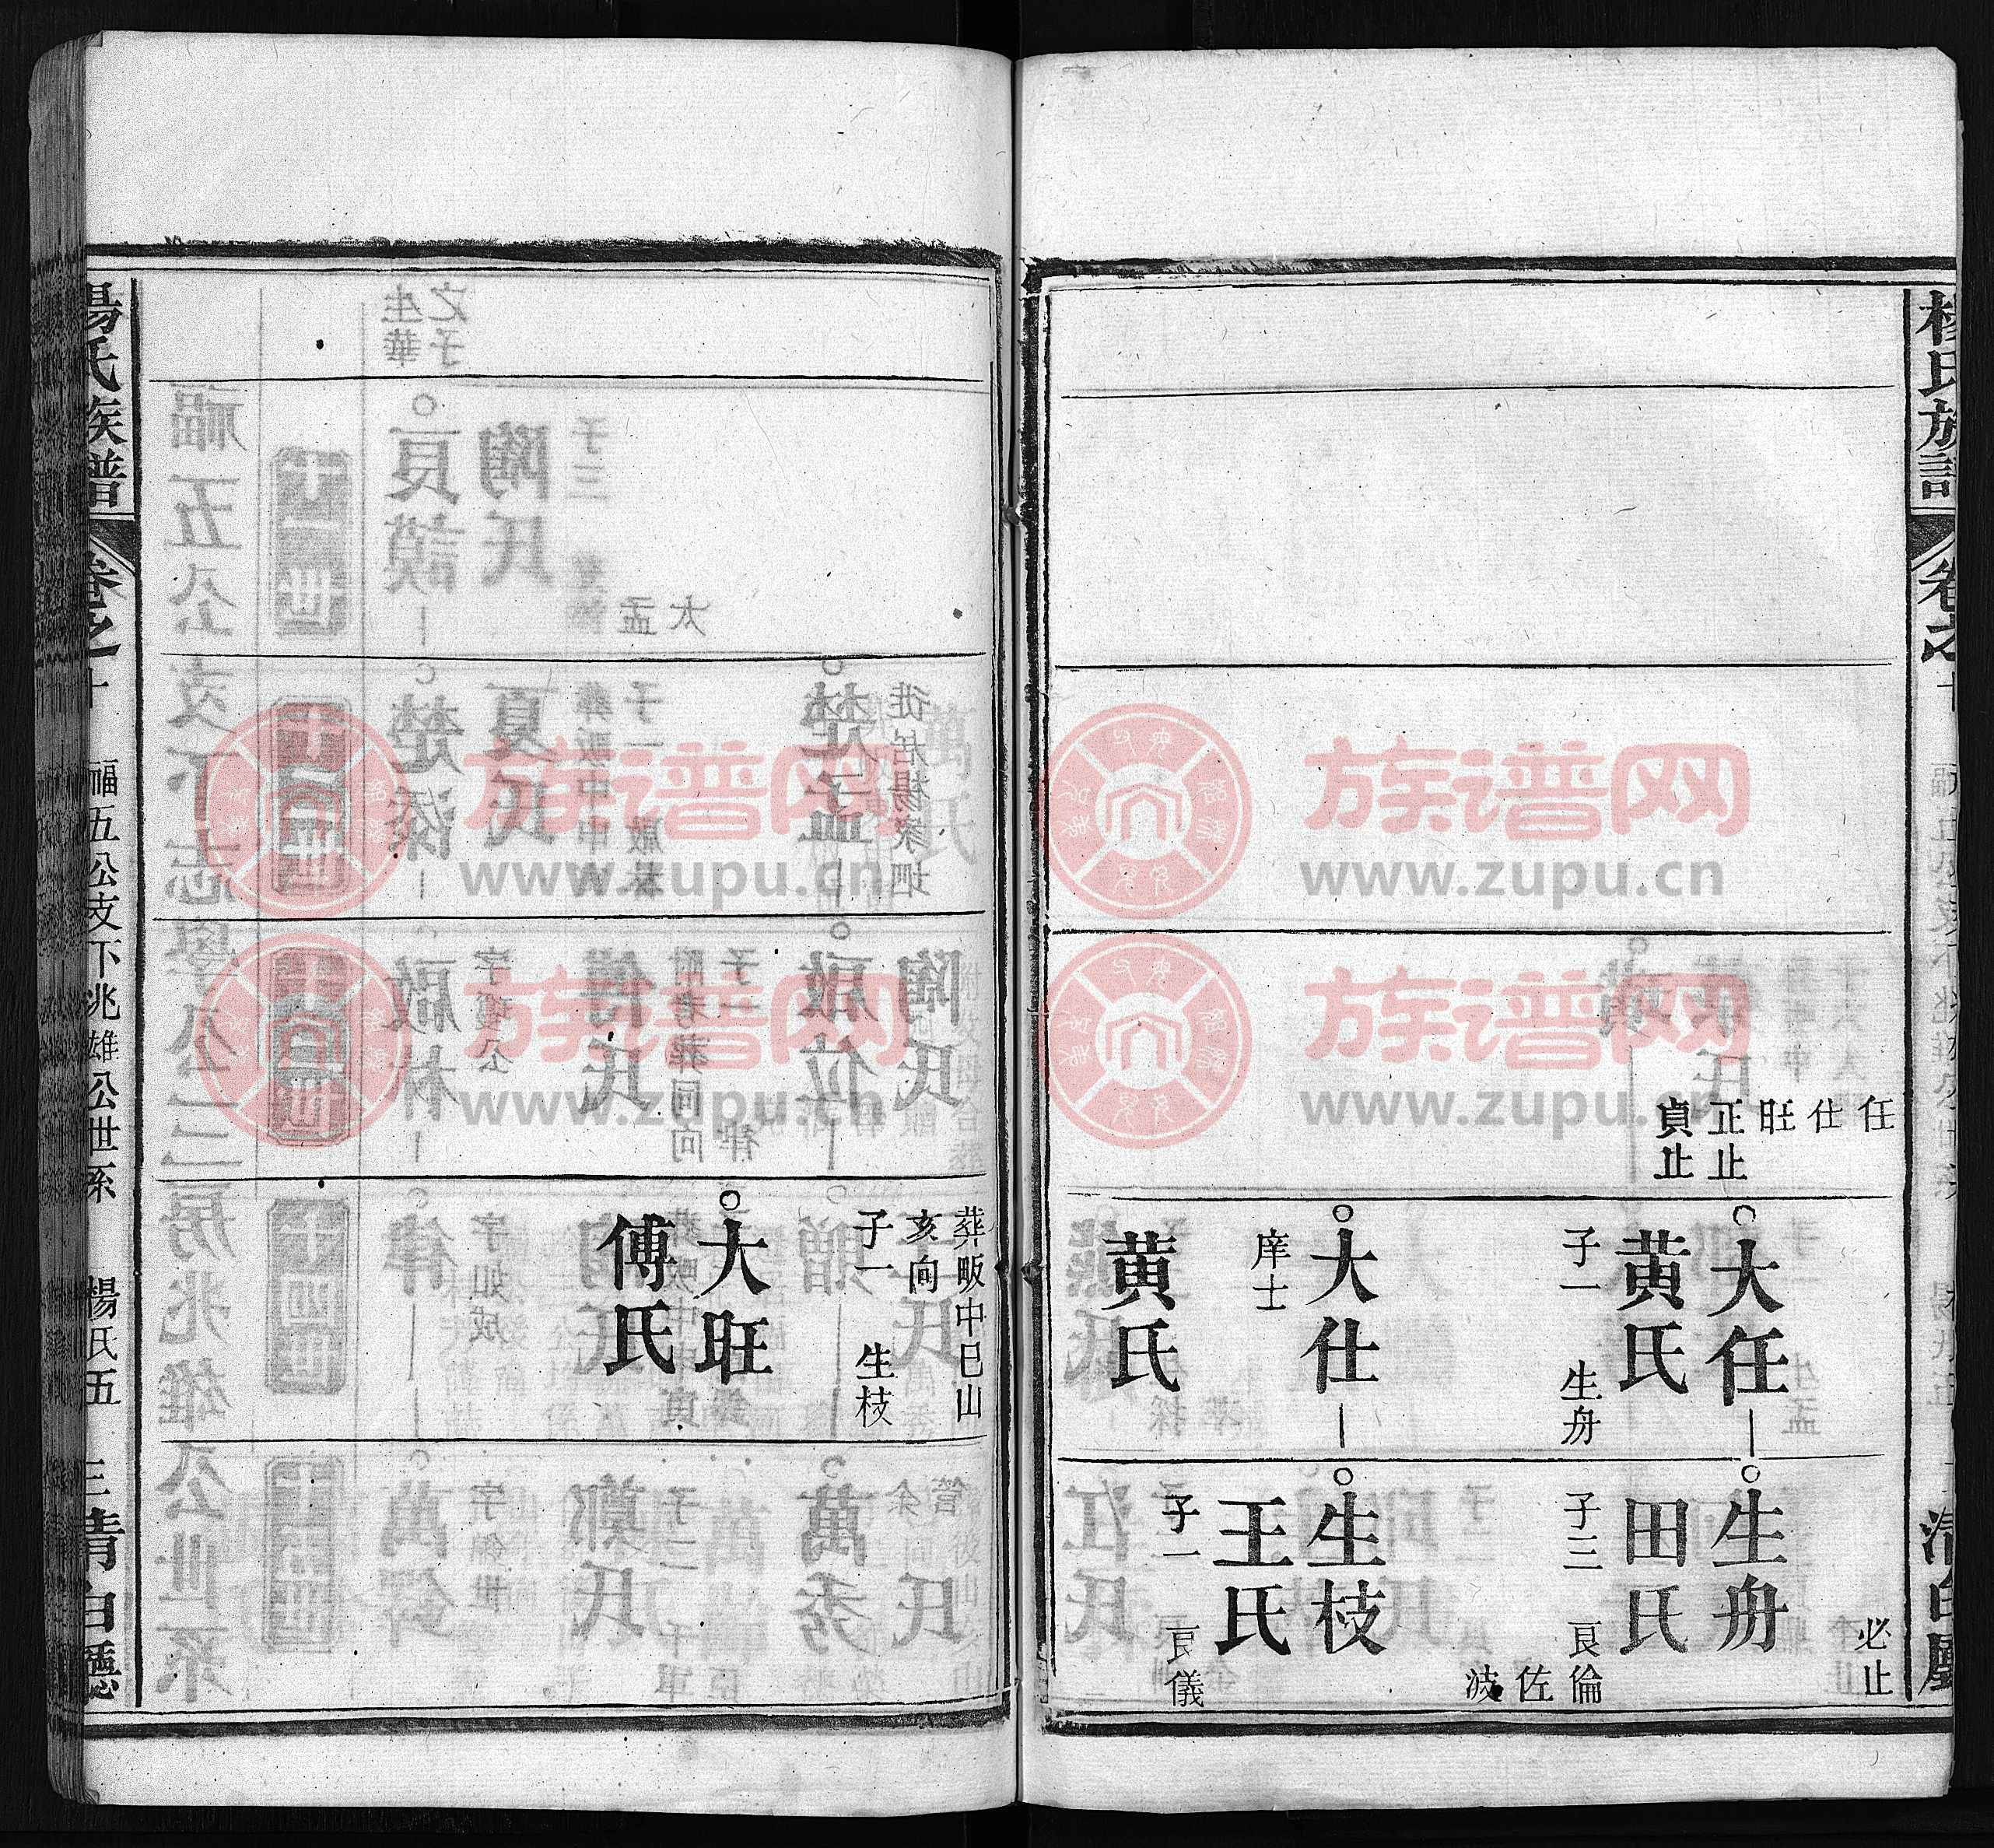 楊氏族譜
卷之十
清白
任
仕
旺
正止
貞止
大任
黃氏
子一 生舟
大仕
庠士
黃氏
必止
生舟
田氏
子三 良倫
佐
波
生枝
王氏
子一 良儀
葬畈中巳山
亥向
子一 生枝
大旺
傅氏
楊氏族譜
卷之十
福五公支下兆雄公世系
楊氏五
三
清白
族谱网
www.zupu.cn
族谱网
www.zupu.cn
族谱网
www.zupu.cn
族谱网
www.zupu.cn